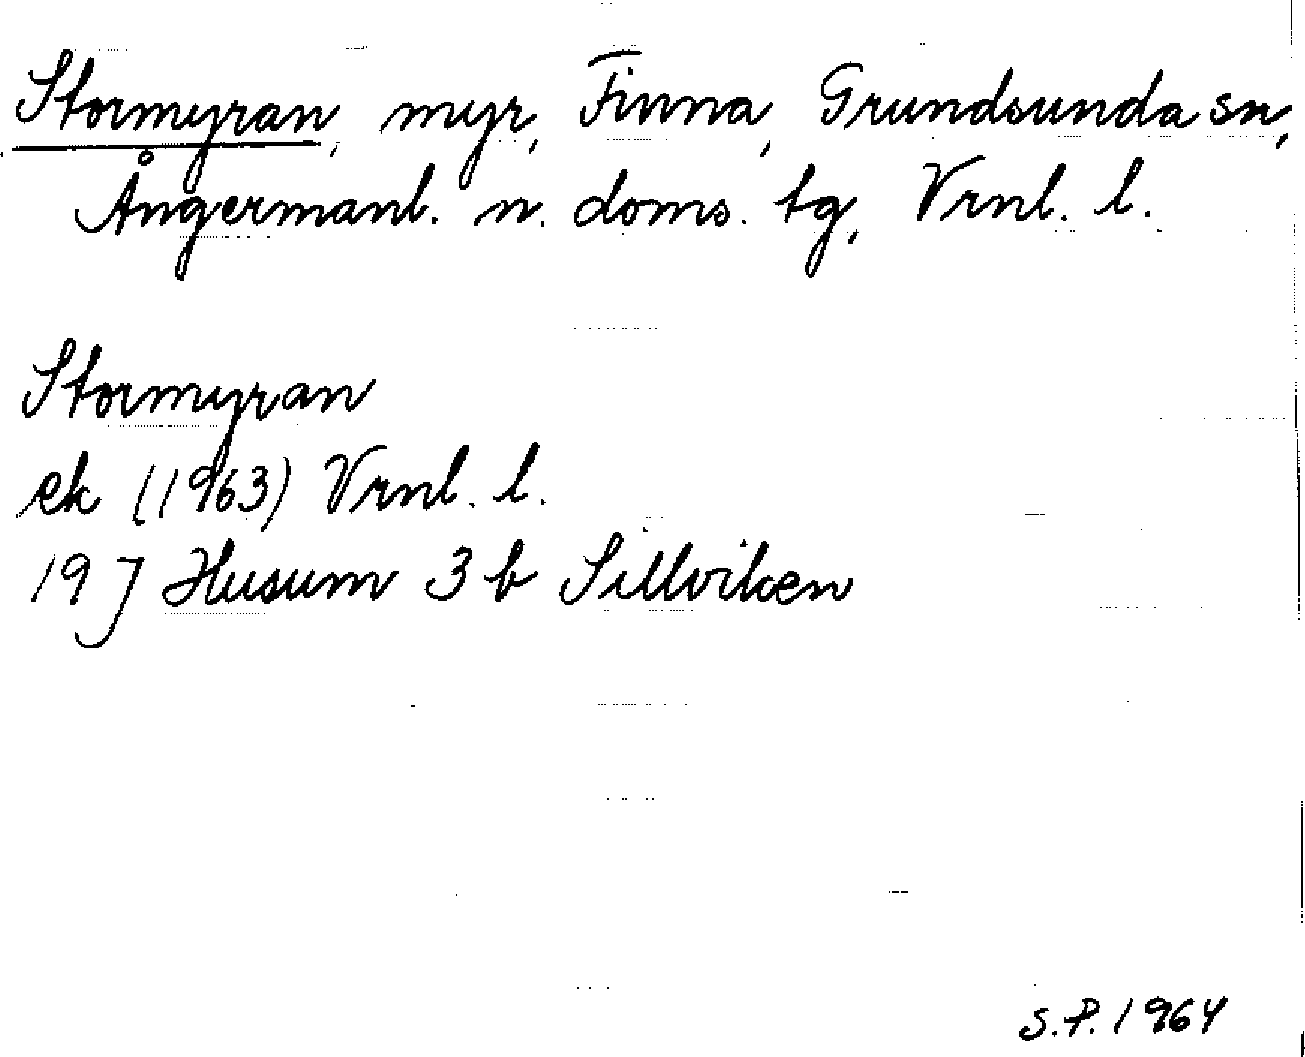 Stormyran, myr, Finna, Grundsunda sn,
Ångermanl. n. doms. tg, Vrnl. l.
Stormyran
ek (1963) Vrnl. l.
19 J Husum 3 b Sillviken
S.P. 1964